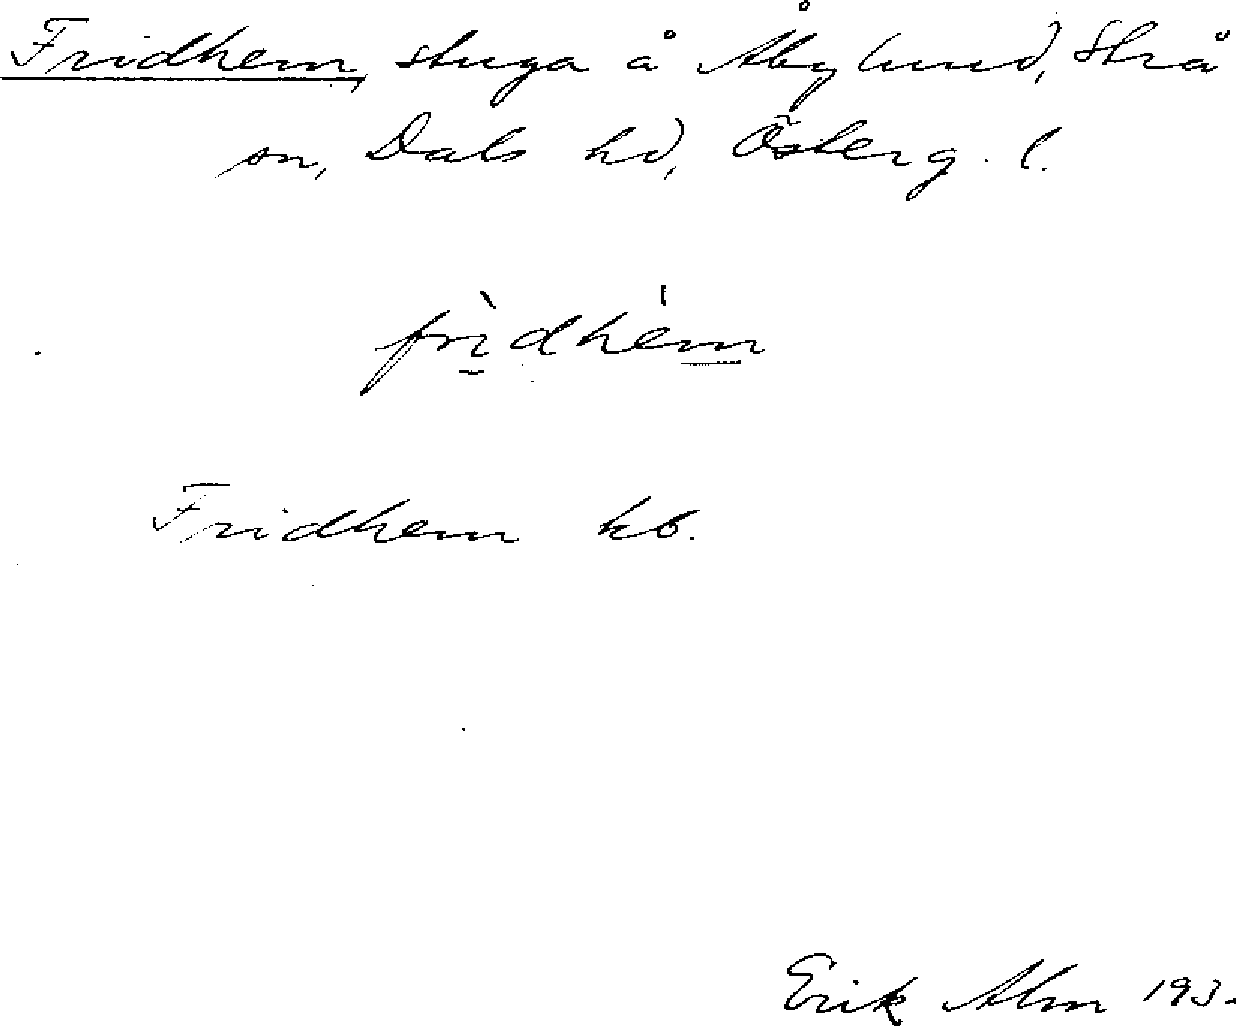 Fridhem, stuga å Åbylund, Strå
sn, Dals hd, Österg. l.
frìdhem
Fridhem kb.
Erik Alm 193